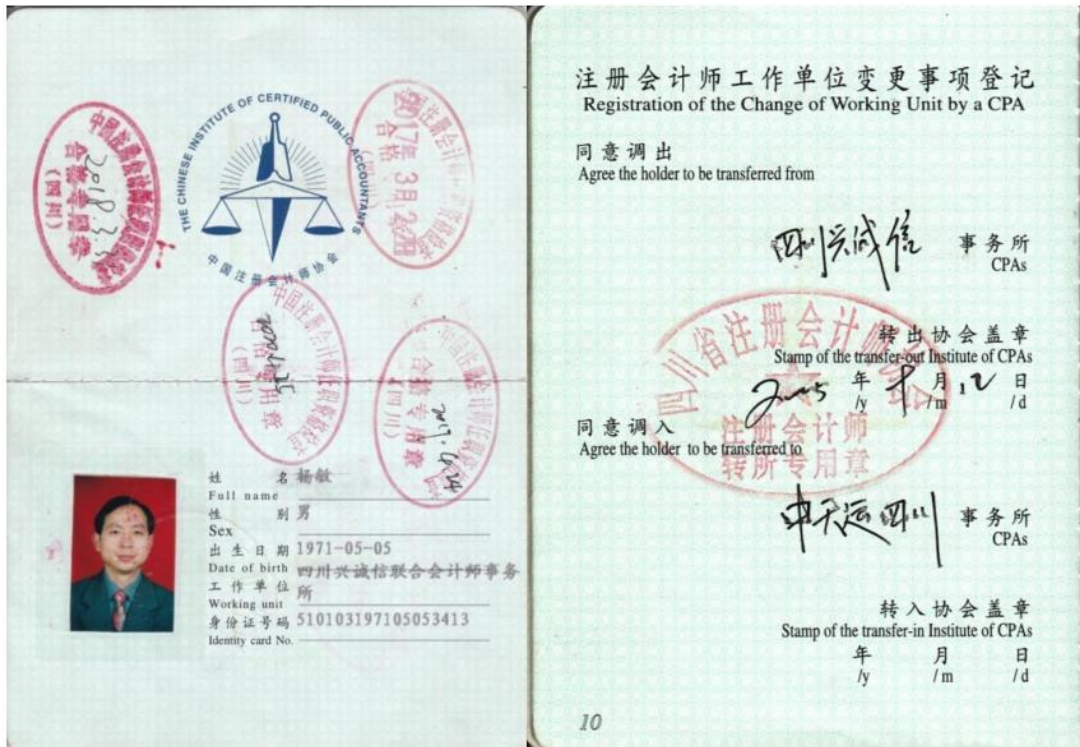 THE CHINESE INSTITUTE OF CERTIFIED PUBLIC ACCOUNTANTS
中国注册会计师协会
2018.3.
合格专用章
（四川）
2017年3月2
合格
合格专用章
（四川）
合格专用章
（四川）
姓名 杨敏
Full name
性别 男
Sex
出生日期 1971-05-05
Date of birth
工作单位 四川兴诚信联合会计师事务
所
Working unit
身份证号码 510103197105053413
Identity card No.
注册会计师工作单位变更事项登记
Registration of the Change of Working Unit by a CPA
同意调出
Agree the holder to be transferred from
四川兴诚信 事务所
CPAs
转出协会盖章
Stamp of the transfer-out Institute of CPAs
年 月 12 日
/y /m /d
四川省注册会计师协会
注册会计师
转所专用章
同意调入
Agree the holder to be transferred to
中天运四川 事务所
CPAs
转入协会盖章
Stamp of the transfer-in Institute of CPAs
年 月 日
/y /m /d
10